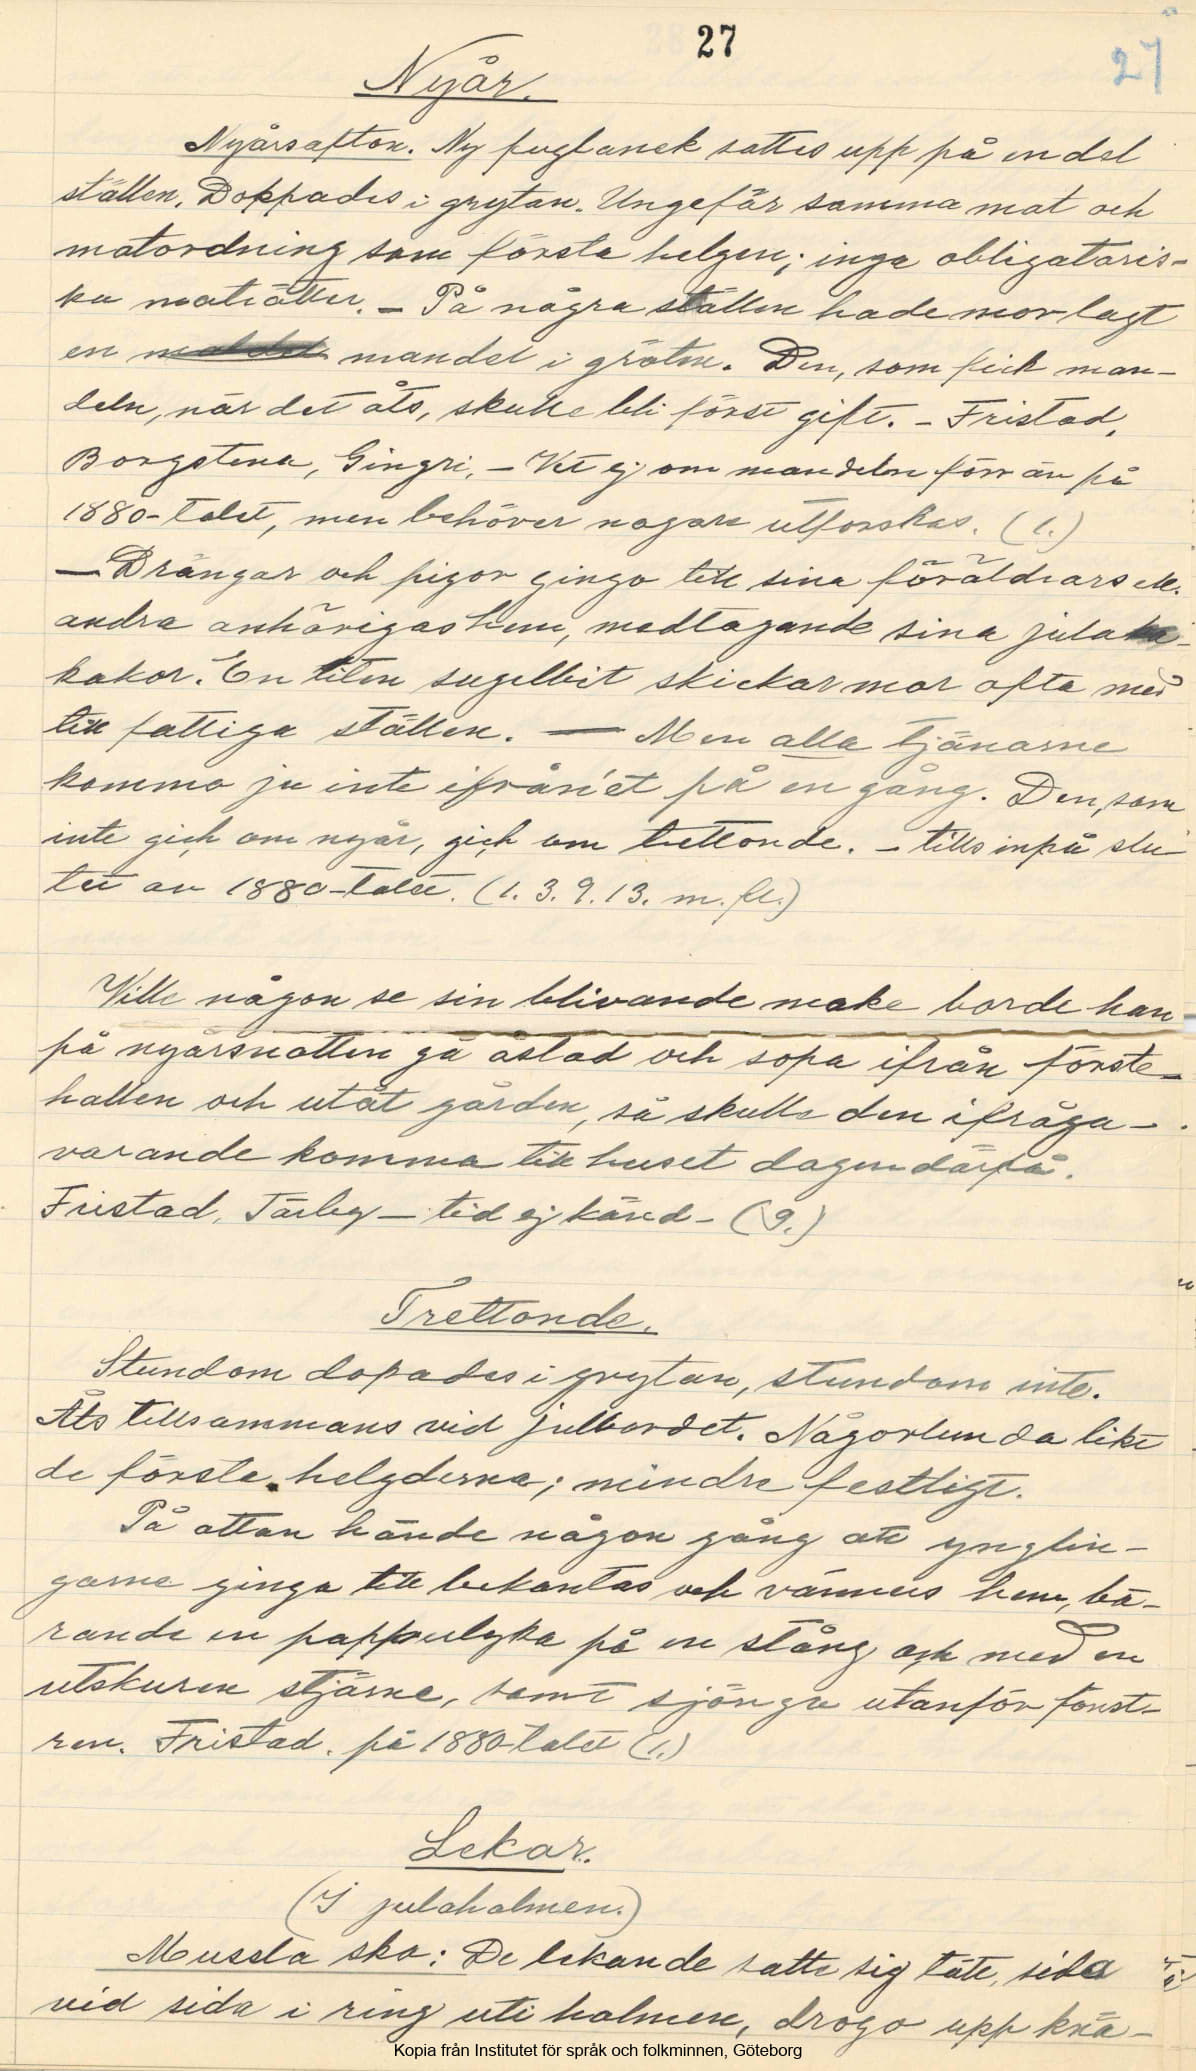 27
27
Nyår.
Nyårsafton. Ny fuglanek sattes upp på en del
ställen. Doppades i grytan. Ungefär samma mat och
matordning som första helgen; inga obligatoris-
ka maträtter. – På några ställen hade mor lagt
en mandel i gröten. Den, som fick man-
deln, när det åts, skulle bli först gift. – Fristad,
Borgstena, Gingri, – Vet ej om mandeln förr än på
1880-talet, men behöver nogare utforskas. (1.)
— Drängar och pigor gingo till sina föräldrars ell.
andra anhörigas hem, medtagande sina jula-
kakor. En liten sugelbit skickar mor ofta med
till fattiga ställen. — Men alla tjänarne
kommo ju inte ifrån'et på en gång. Den, som
inte gick om nyår, gick om trettonde. – tills inpå slu-
tet av 1880-talet. (1. 3. 9. 13. m. fl.)
Ville någon se sin blivande make borde han
på nyårsnatten gå åstad och sopa ifrån förste-
hallen och utåt gården, så skulle den ifråga-
varande komma till huset dagen därpå.
Fristad, Tärby – tid ej känd – (9.)
Trettonde.
Stundom dopades i grytan, stundom inte.
Åts tillsammans vid julbordet. Någorlunda likt
de första helgderna; mindre festligt.
På attan hände någon gång att ynglin-
garne gingo till bekantas och vänners hem, bä-
rande en papperlykta på en stång och med en
utskuren stjärne, samt sjöngo utanför fönst-
ren. Fristad. på 1880-talet (1.)
Lekar.
(I julahalmen.)
Mussla sko: De lekande satte sig tätt, sida
vid sida i ring uti halmen, drogo upp knä-
Kopia från Institutet för språk och folkminnen, Göteborg